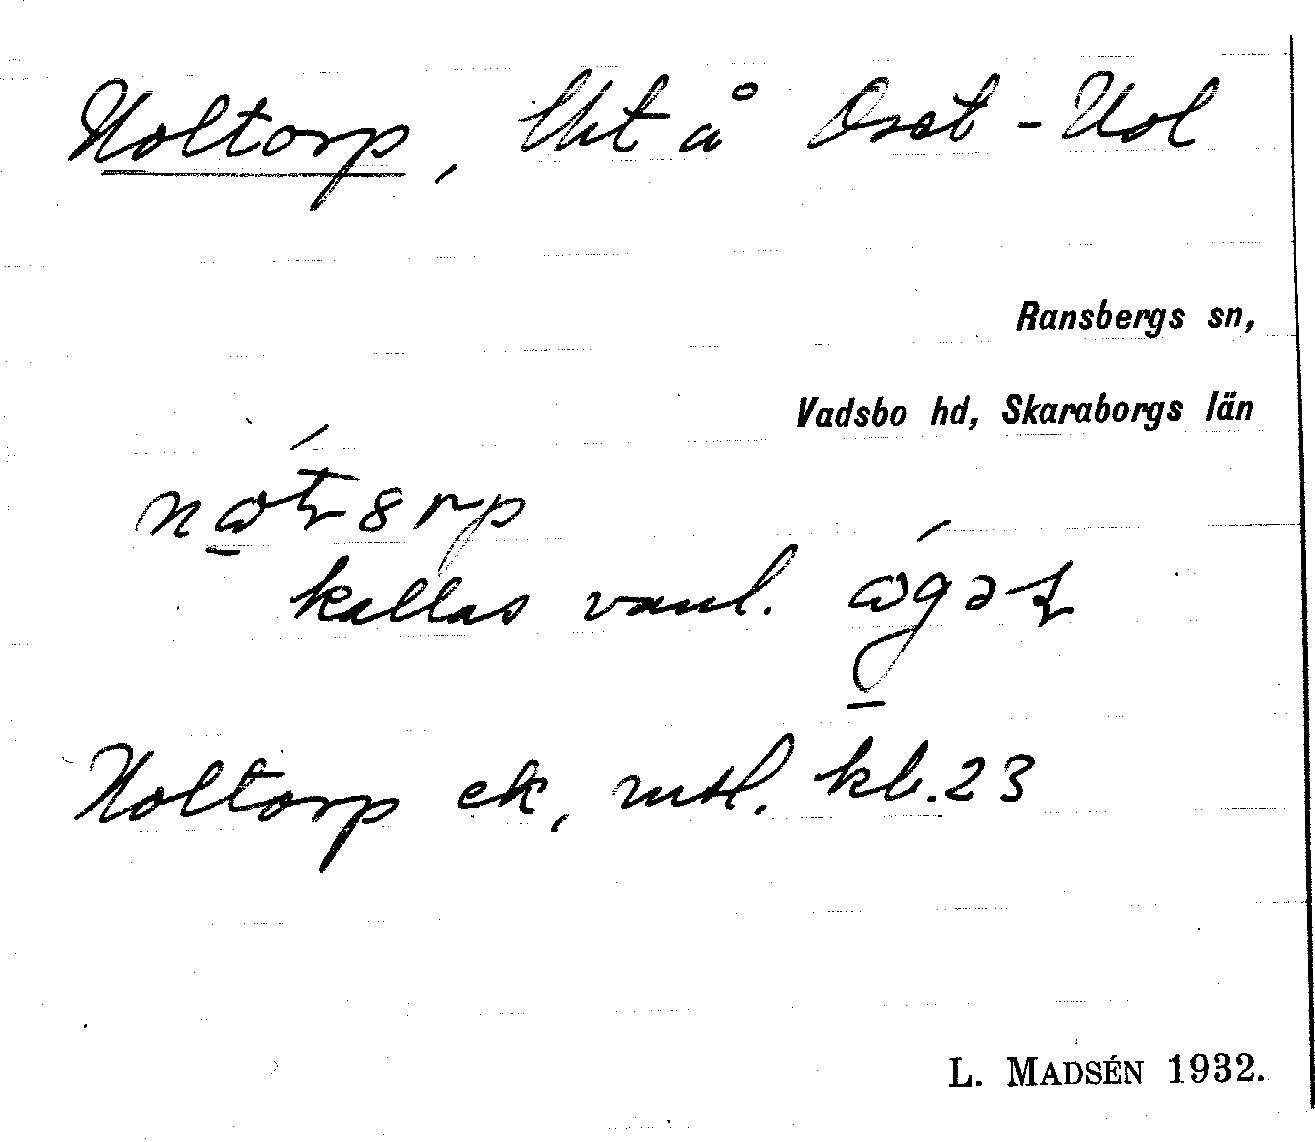 Noltorp, lht å Oset-Nol
Ransbergs sn,
Vadsbo hd, Skaraborgs län
kallas vanl.
Noltorp ek, mtl. kb. 23
L. MADSÉN 1932.